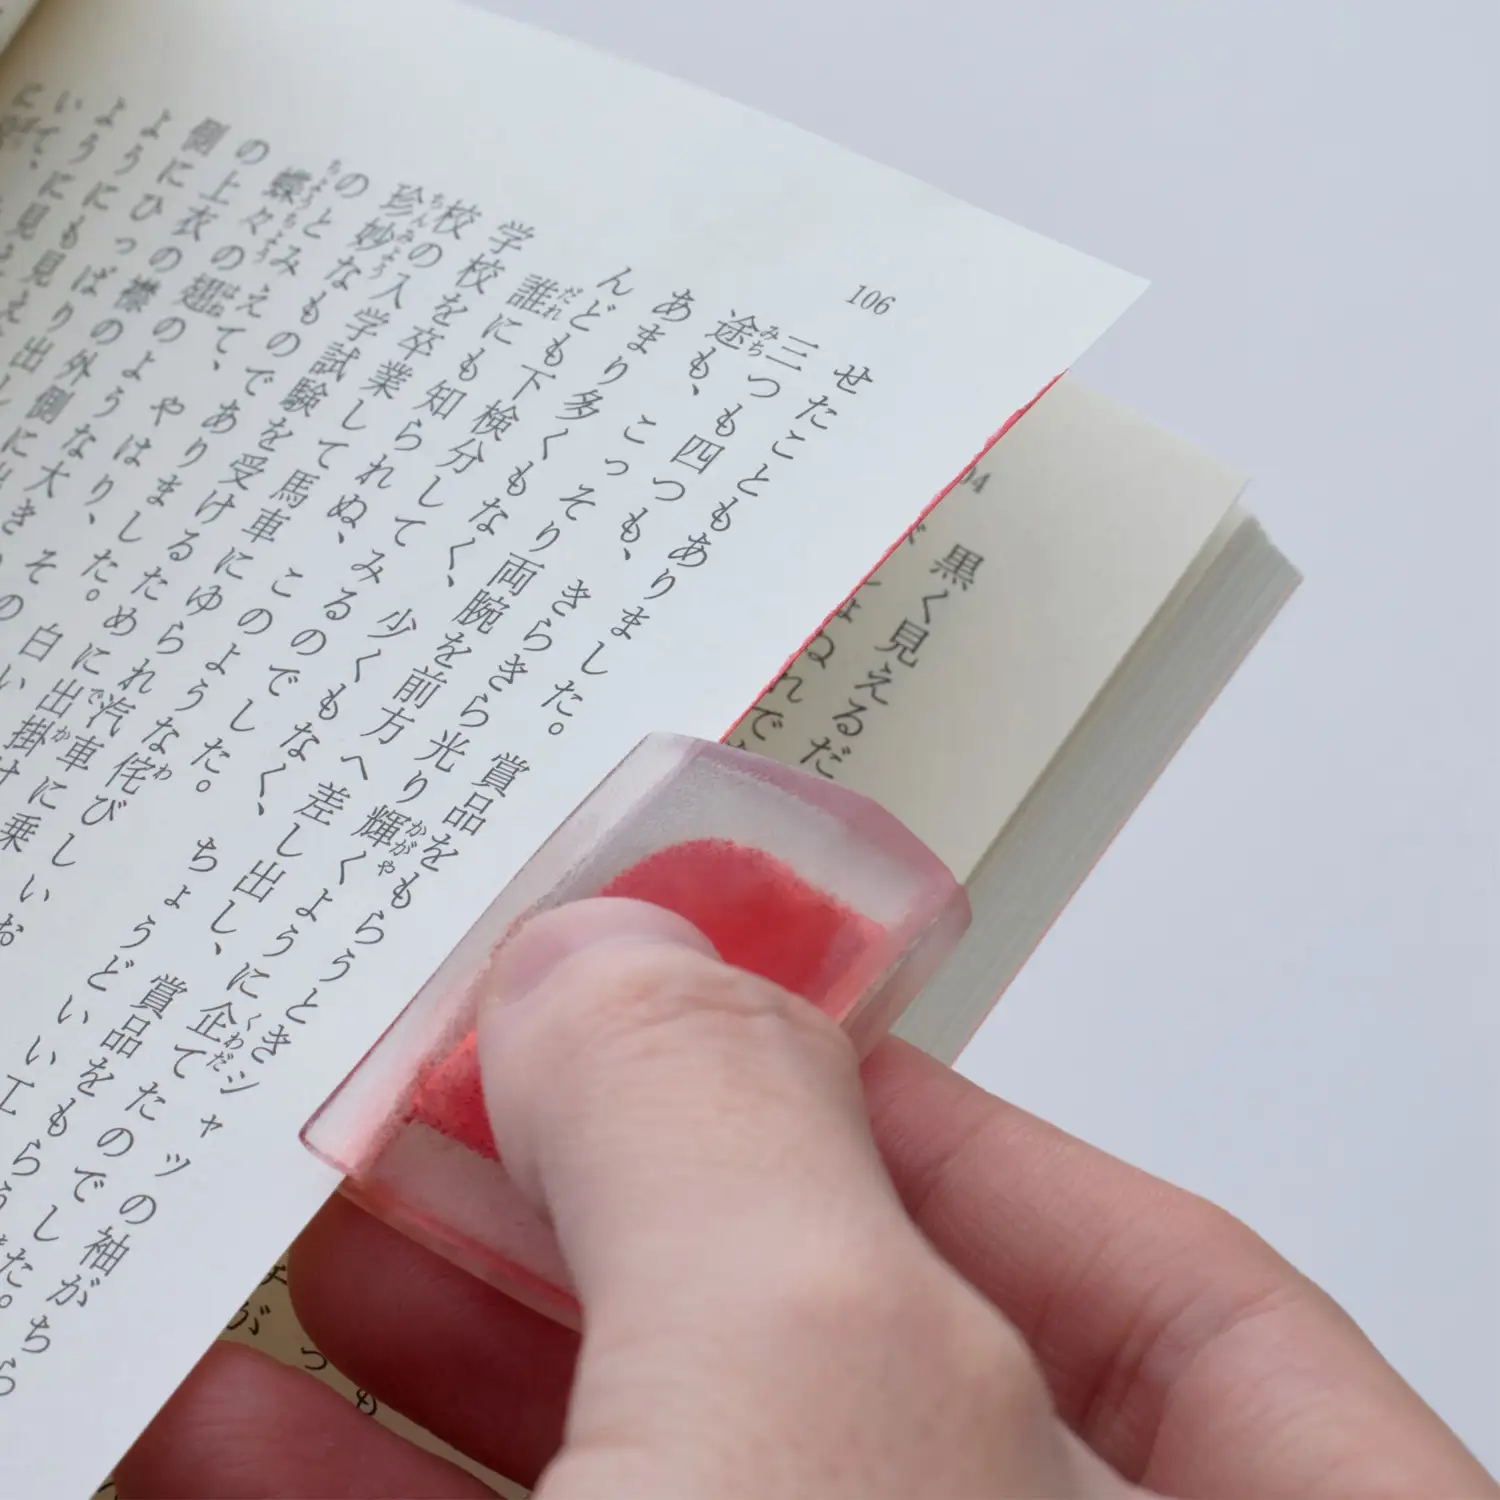 106
せたこともありました。賞品をもらうときシャツの袖がちら
三つも四つも、きらきら光り輝くように企てたのでした。
途も、こっそり両腕を前方へ差し出し、賞品をもらう
あまり多くもなく、少くもなく、ちょうどいい工
んども下検分してみるのでした。
誰にも知られぬ、このような侘びしいお
学校を卒業して馬車にゆられ汽車に乗
校の入学試験を受けるために出掛け
珍妙なものでありました。白い
のとみえて、やはり、その
蝶々の翅のような大き
の上衣の襟の外側に出
側にひっぱり出し
ようにも見え
ように見
いて、
黒く見えるだ